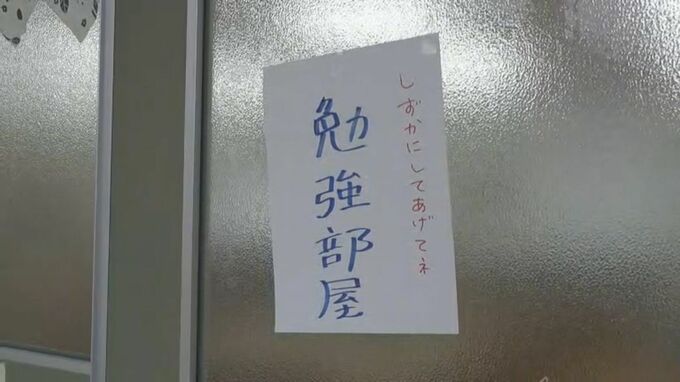 しずかにしてあげてネ
勉強部屋